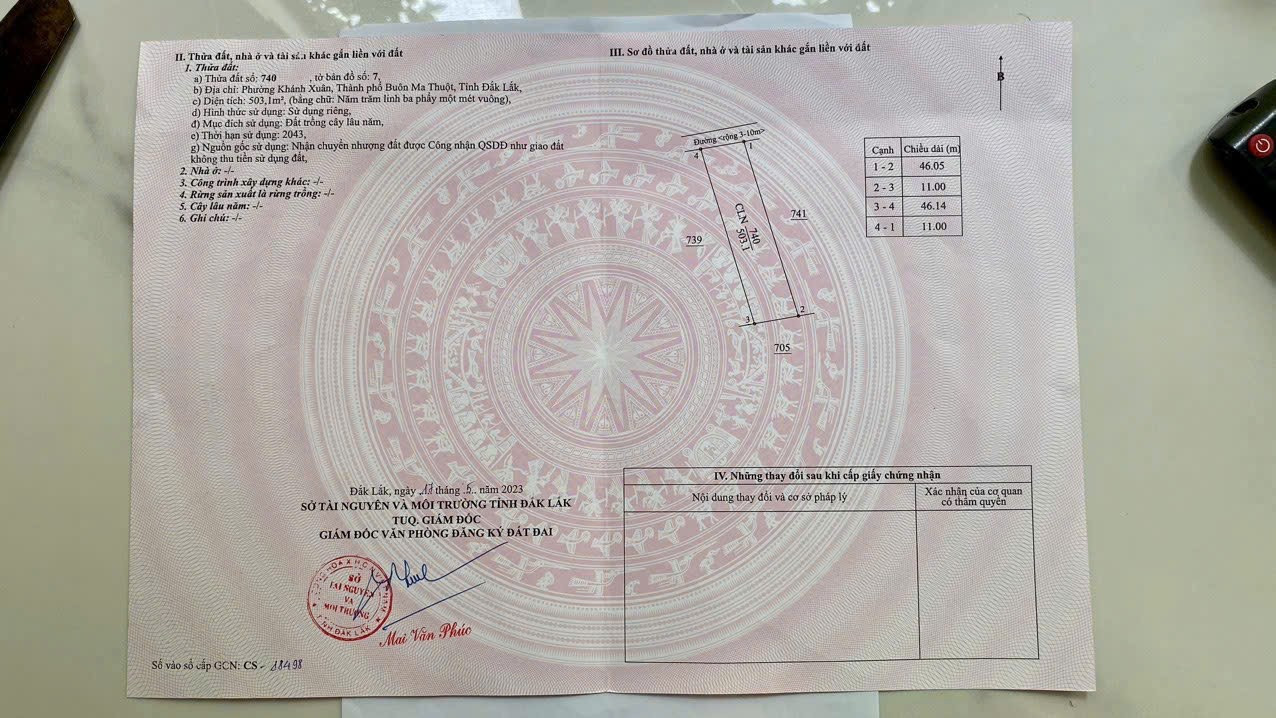 II. Thửa đất, nhà ở và tài sản khác gắn liền với đất
1. Thửa đất:
a) Thửa đất số: 740 , tờ bản đồ số: 7,
b) Địa chỉ: Phường Khánh Xuân, Thành phố Buôn Ma Thuột, Tỉnh Đắk Lắk,
c) Diện tích: 503,1m², (bằng chữ: Năm trăm linh ba phẩy một mét vuông),
d) Hình thức sử dụng: Sử dụng riêng,
đ) Mục đích sử dụng: Đất trồng cây lâu năm,
e) Thời hạn sử dụng: 2043,
g) Nguồn gốc sử dụng: Nhận chuyển nhượng đất được Công nhận QSDĐ như giao đất
không thu tiền sử dụng đất,
2. Nhà ở: -/-
3. Công trình xây dựng khác: -/-
4. Rừng sản xuất là rừng trồng: -/-
5. Cây lâu năm: -/-
6. Ghi chú: -/-
Đắk Lắk, ngày tháng 5 năm 2023
SỞ TÀI NGUYÊN VÀ MÔI TRƯỜNG TỈNH ĐẮK LẮK
TUQ. GIÁM ĐỐC
GIÁM ĐỐC VĂN PHÒNG ĐĂNG KÝ ĐẤT ĐAI
SỞ
TÀI NGUYÊN
VÀ
MÔI TRƯỜNG
TỈNH ĐẮK LẮK
Mai Văn Phúc
Số vào sổ cấp GCN: CS - 11498
III. Sơ đồ thửa đất, nhà ở và tài sản khác gắn liền với đất
B
Đường <rộng 3-10m>
4
1
741
739
CLN 740
503.1
3
2
705
Cạnh Chiều dài (m)
1 - 2 46.05
2 - 3 11.00
3 - 4 46.14
4 - 1 11.00
IV. Những thay đổi sau khi cấp giấy chứng nhận
Nội dung thay đổi và cơ sở pháp lý
Xác nhận của cơ quan
có thẩm quyền